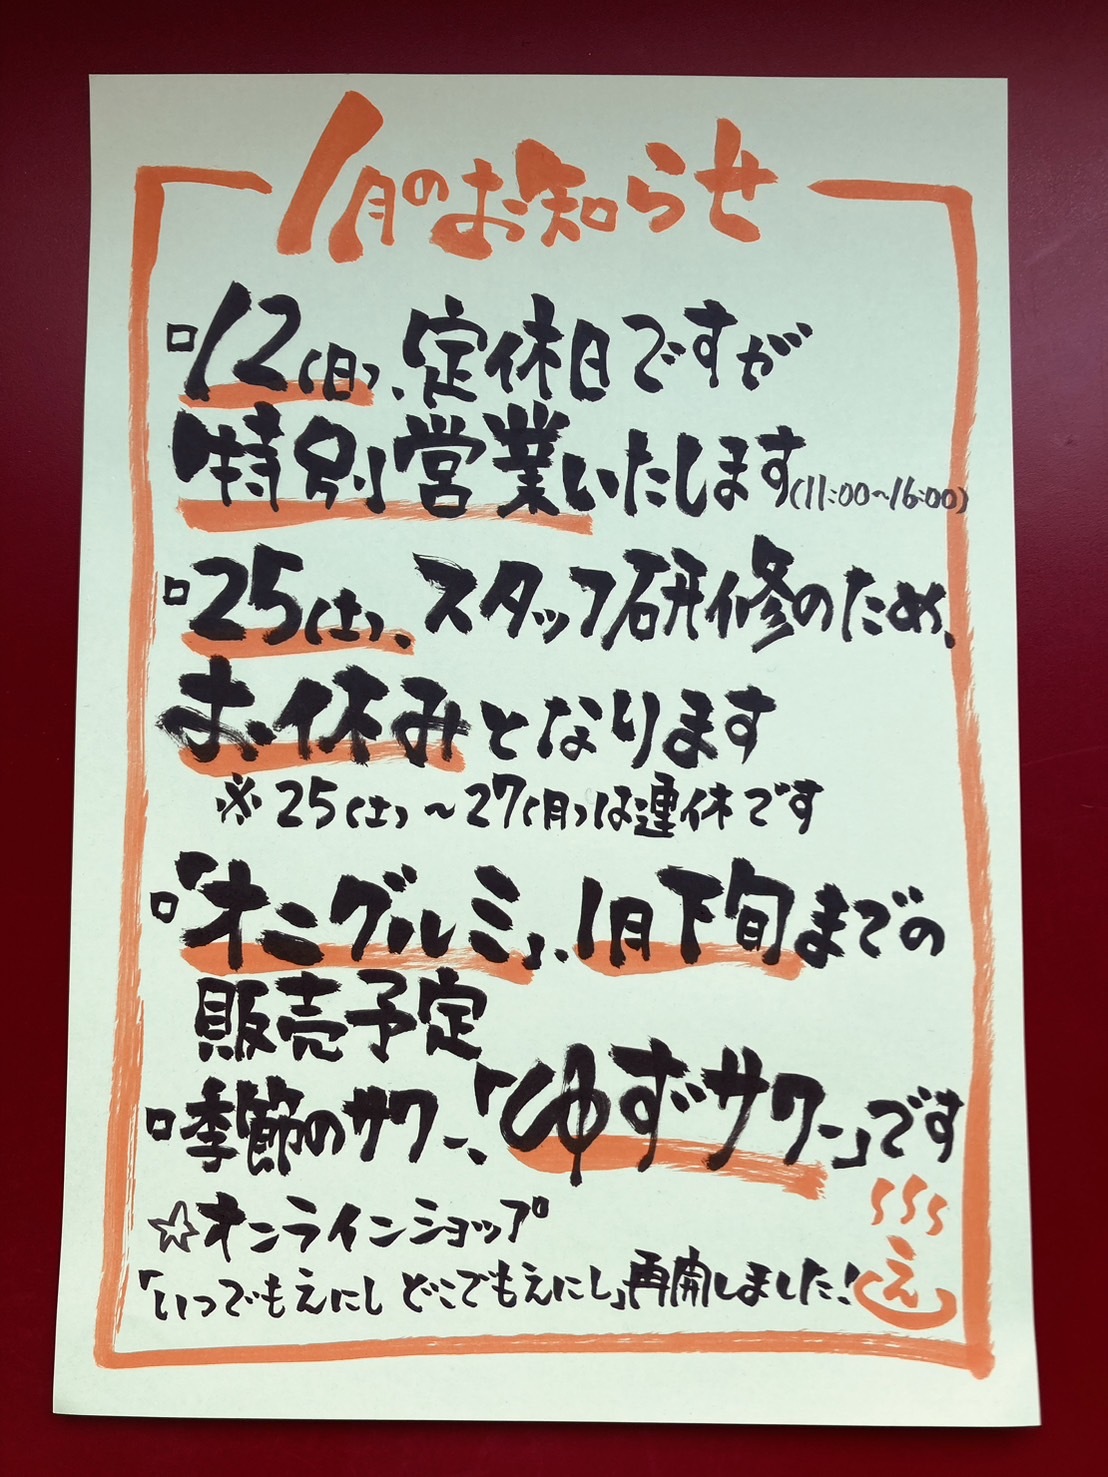 1月のお知らせ
□12(日)、定休日ですが
特別営業いたします(11:00〜16:00)
□25(土)、スタッフ研修のため、
お休みとなります
※25(土)〜27(月)は連休です
□「オニグルミ」、1月下旬までの
販売予定
□季節のサワー、「ゆずサワー」です
☆オンラインショップ
「いつでもえにし どこでもえにし」再開しました!
え